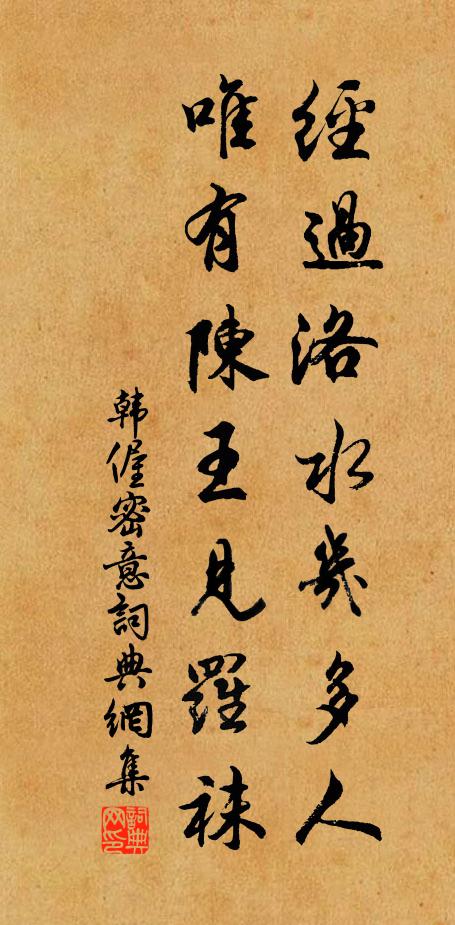 經過洛水幾多人
唯有陳王見羅袜
韩偓密意詞典網集
詞典网印